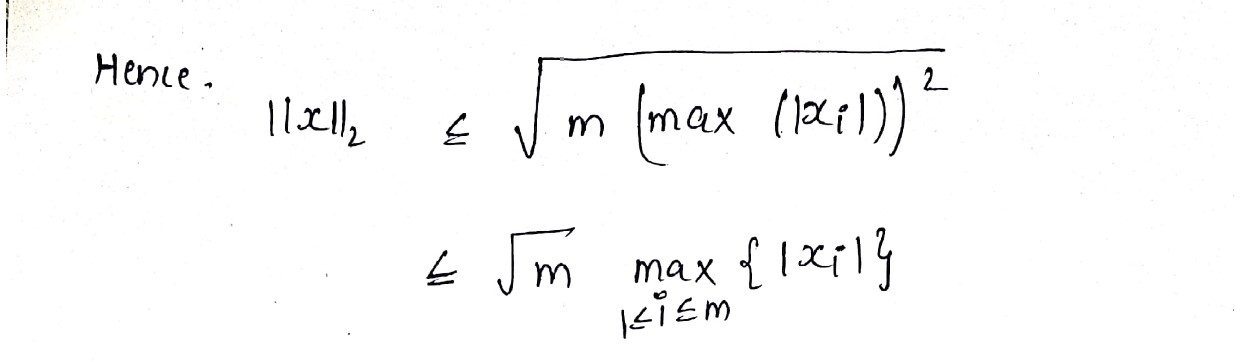 Hence.
||x||₂ ≤ √(m (max (|xᵢ|))²)
≤ √m max {|xᵢ|}
1≤i≤m